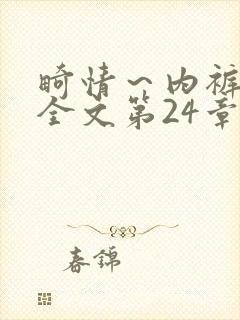 畸情一内裤
全文第24章
春锦